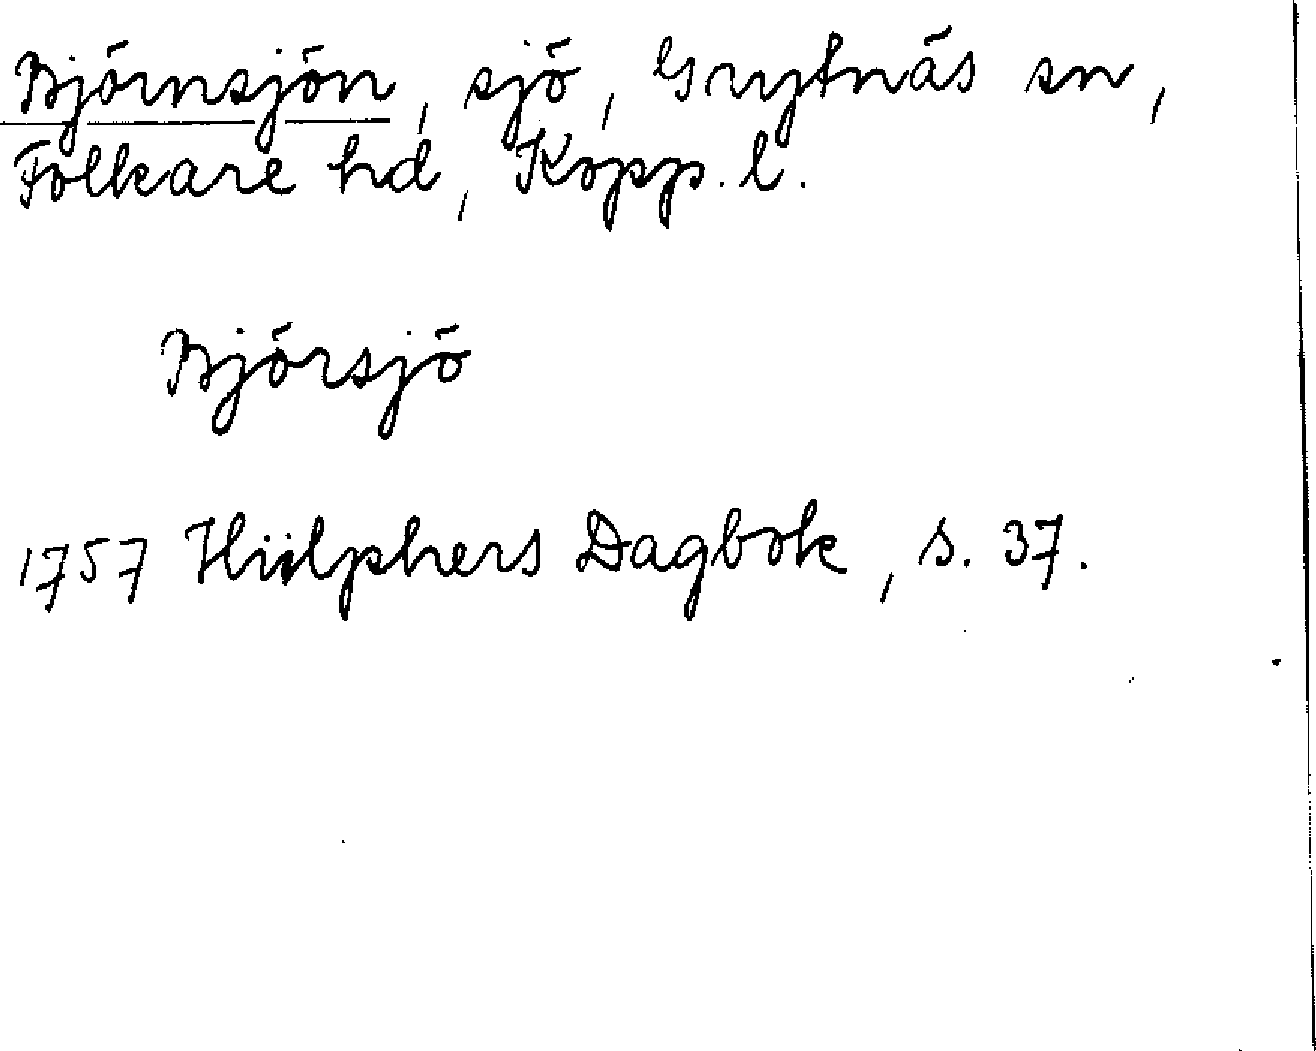 Björnsjön, sjö, Grytnäs sn,
Folkare hd, Kopp. l.
Björsjö
1757 Hülphers Dagbok, s. 37.